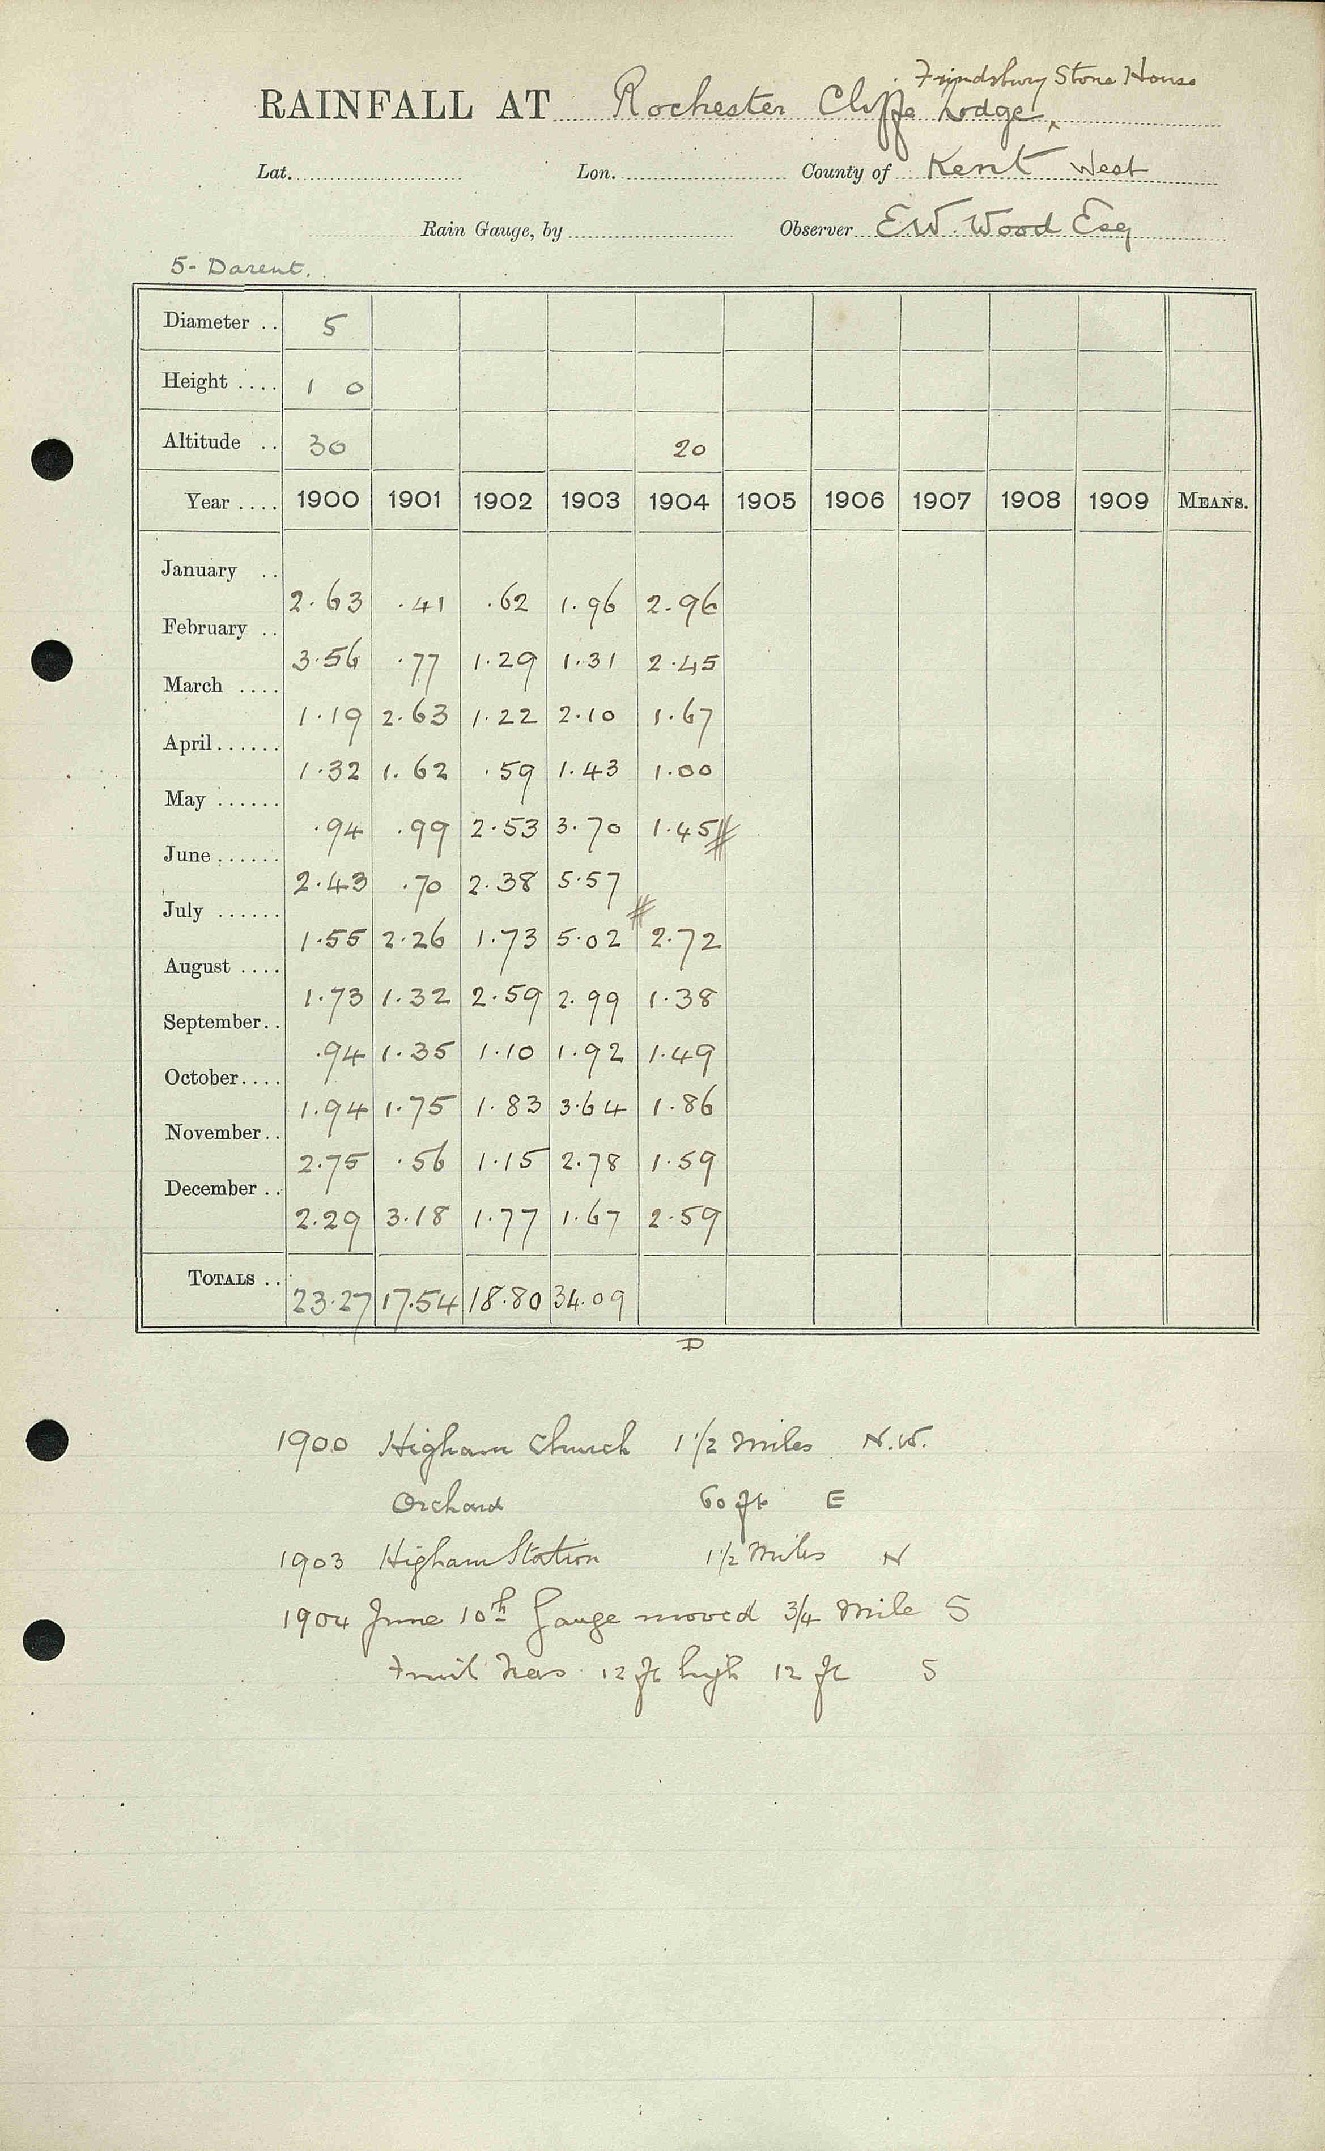 Frindsbury Stone House
RAINFALL AT Rochester Cliffe Lodge
Lat. Lon. County of Kent West
Rain Gauge, by Observer E.W. Wood Esq
5- Darent.
Diameter .. 5
Height .... 1 0
Altitude .. 30 20
Year .... 1900 1901 1902 1903 1904 1905 1906 1907 1908 1909 MEANS.
January .. 2.63 .41 .62 1.96 2.96
February .. 3.56 .77 1.29 1.31 2.45
March .... 1.19 2.63 1.22 2.10 1.67
April ...... 1.32 1.62 .59 1.43 1.00
May ...... .94 .99 2.53 3.70 1.45 #
June ...... 2.43 .70 2.38 5.57
July ...... 1.55 2.26 1.73 5.02 # 2.72
August .... 1.73 1.32 2.59 2.99 1.38
September.. .94 1.35 1.10 1.92 1.49
October.... 1.94 1.75 1.83 3.64 1.86
November.. 2.75 .56 1.15 2.78 1.59
December .. 2.29 3.18 1.77 1.67 2.59
TOTALS .. 23.27 17.54 18.80 34.09
D
1900 Higham Church 1 1/2 Miles N.W.
Orchard 60 ft E
1903 Higham Station 1 1/2 Miles N
1904 June 10th Gauge moved 3/4 Mile S
Fruit Trees 12 ft high 12 ft S